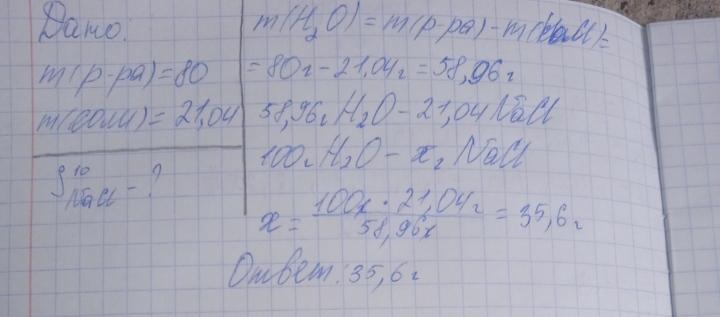 Дано:
m(р-ра)=80
m(соли)= 21,04
S¹⁰NaCl - ?
m(H₂O) = m(р-ра) - m(NaCl)=
= 80г - 21,04г = 58,96г
58,96г H₂O - 21,04 NaCl
100г H₂O - x г NaCl
x = 100г · 21,04г / 58,96г = 35,6г
Ответ: 35,6г